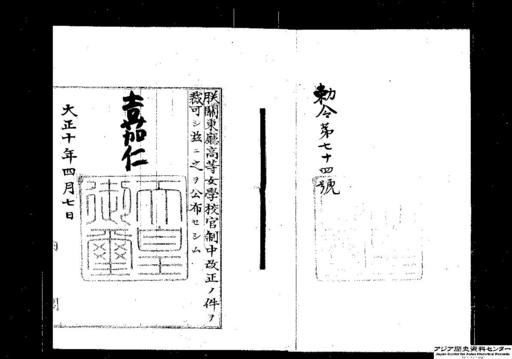 勅令第七十四號
朕關東廳高等女學校官制中改正ノ件ヲ
裁可シ茲ニ之ヲ公布セシム
嘉仁
天皇
御璽
大正十年四月七日
アジア歴史資料センター
Japan Center for Asian Historical Records